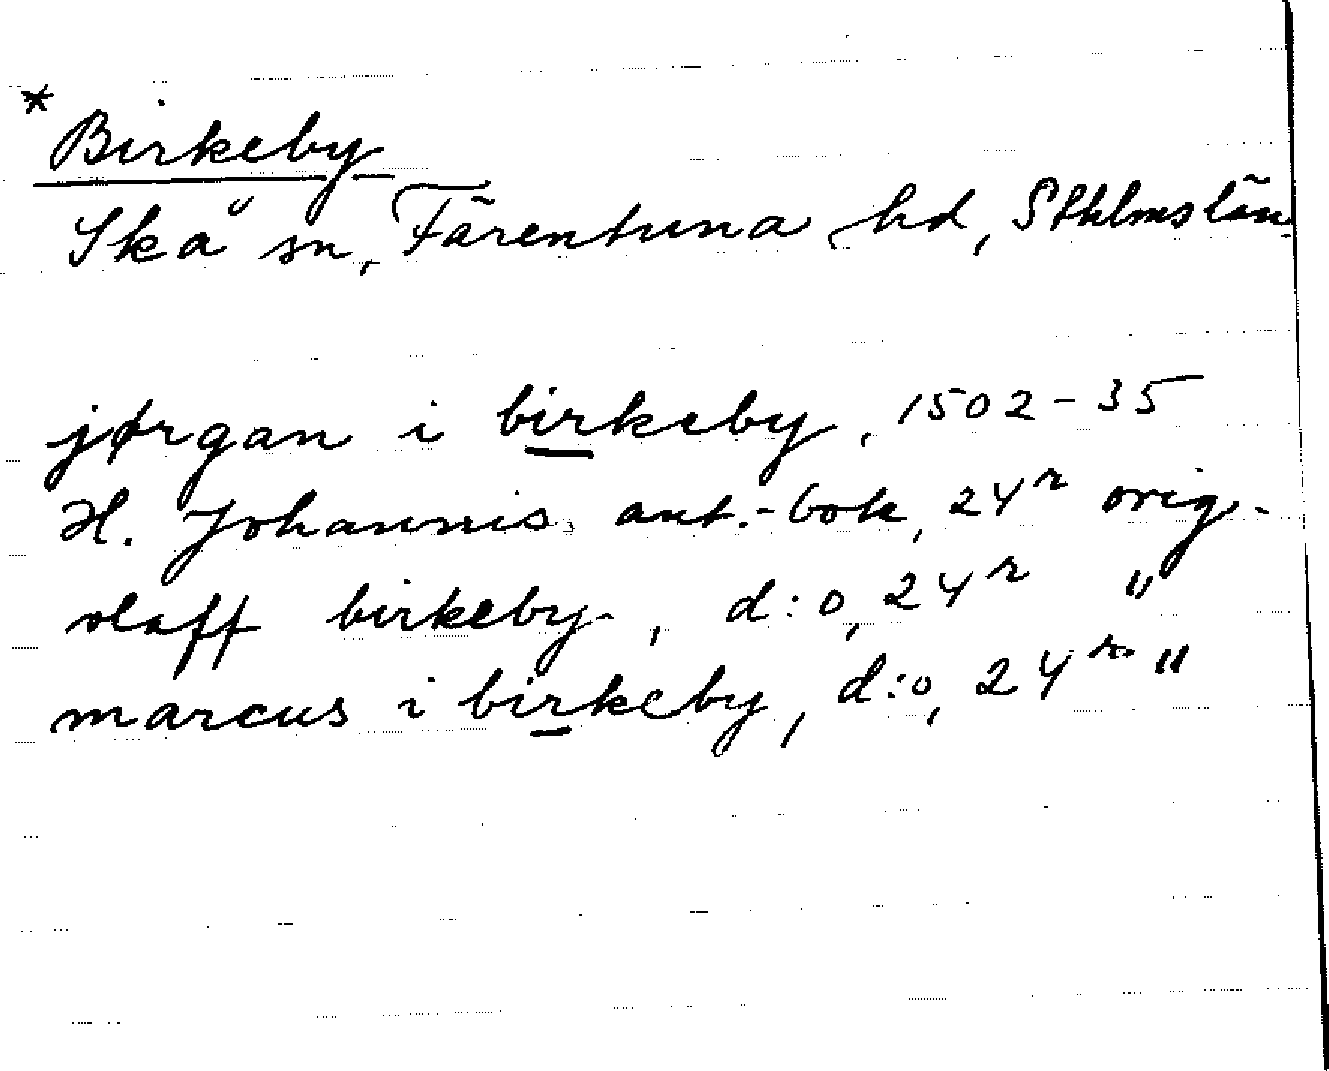 * Birkeby
Skå sn, Färentuna hd, Sthlms län
jørgan i birkeby, 1502-35
H. Johannis ant.-bok, 24r orig.
olaff birkeby, d:o, 24r "
marcus i birkeby, d:o, 24r "